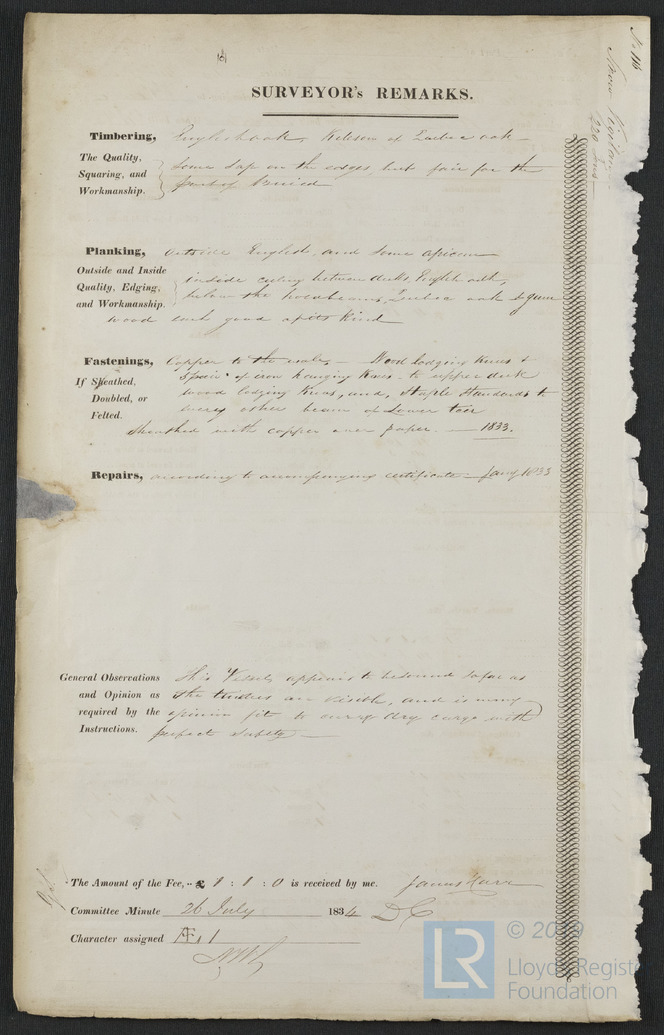 No 116
Snow Vigilant
220 Tons
SURVEYOR's REMARKS.
Timbering, English oak, Kelson of Quebec oak
The Quality,
Squaring, and
Workmanship.
Some Sap on the edges, but fair for the
Planking, outside English, and some african
Outside and Inside
Quality, Edging,
and Workmanship.
inside ceiling between decks, English oak,
below the holdbeams, Quebec oak &
wood each good of its Kind
Fastenings, Copper to the wales, Wood lodging Knees &
If Sheathed,
Doubled, or
Felted.
5 pair of iron hanging Knees to upper deck
wood lodging Knees, and, Staple Standards to
every other beam of Lower Tier
Sheathed with copper over paper. 1833.
Repairs, according to accompanying certificate Jany 1833
General Observations
and Opinion as
required by the
Instructions.
This Vessel appears to be sound so far as
the timbers are visible, and is in my
opinion fit to carry dry cargo with
perfect safety
The Amount of the Fee, £ 1 : 1 : 0 is received by me.
Committee Minute 26 July 1834
Character assigned Æ 1
LR
© 2019
Lloyd's Register
Foundation